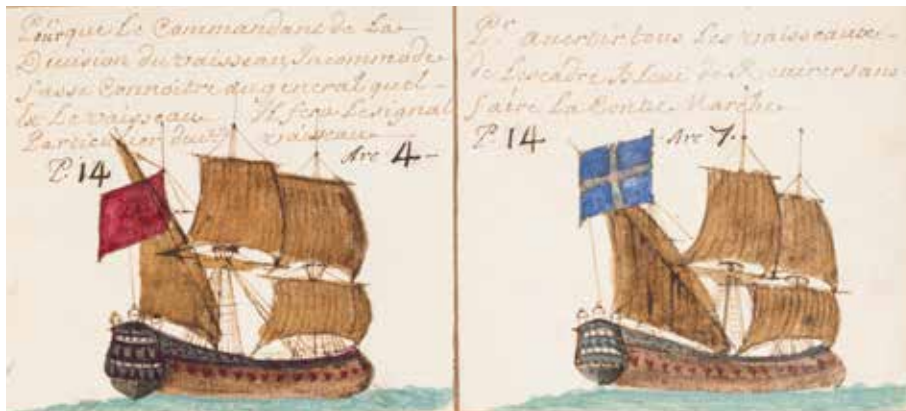 Pour que Le Commandant de La
Division du vaisseau Incommodé
fasse Connoitre au general quel
Est Le vaisseau Il fera Le signal
Particulier du vaisseau
P. 14 Arc 4
Pr auertir tous Les vaisseaux
de Lescadre Bleue de Reuirer sans
faire La Contre Marche
P. 14 Arc 7